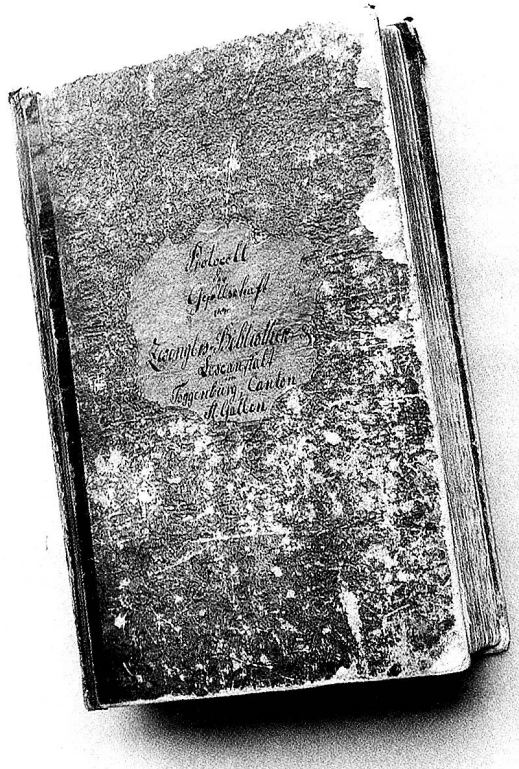 Protocoll
der
Gesellschaft
von
Zwinglis-Bibliothek &
Leseanstalt
im
Toggenburg, Canton
St. Gallen